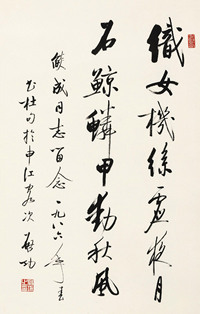 織女機絲虛夜月
石鯨鱗甲動秋風
成同志留念一九八六年
書杜句於申江客次 啟功